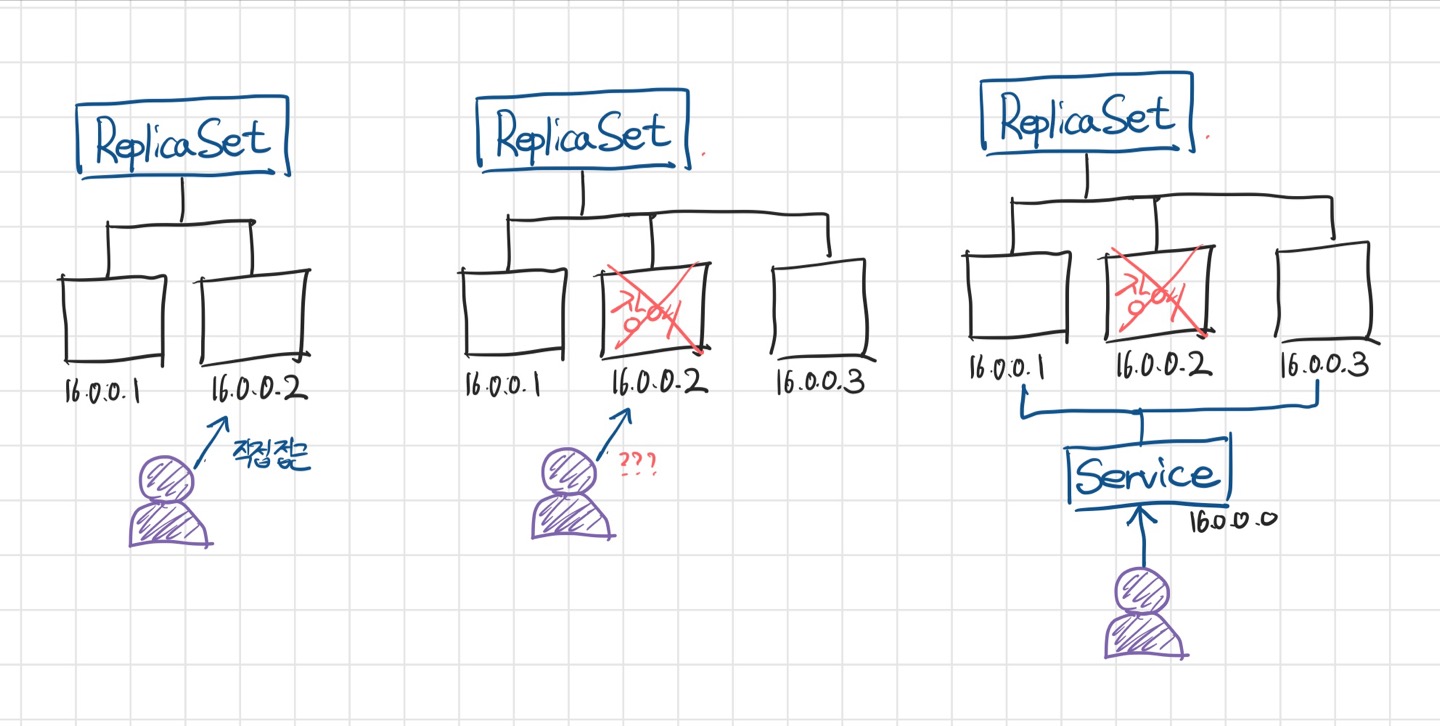 ReplicaSet
16.0.0.1
16.0.0.2
직접접근
ReplicaSet
장애
16.0.0.1
16.0.0.2
16.0.0.3
???
ReplicaSet
장애
16.0.0.1
16.0.0.2
16.0.0.3
Service
16.0.0.0